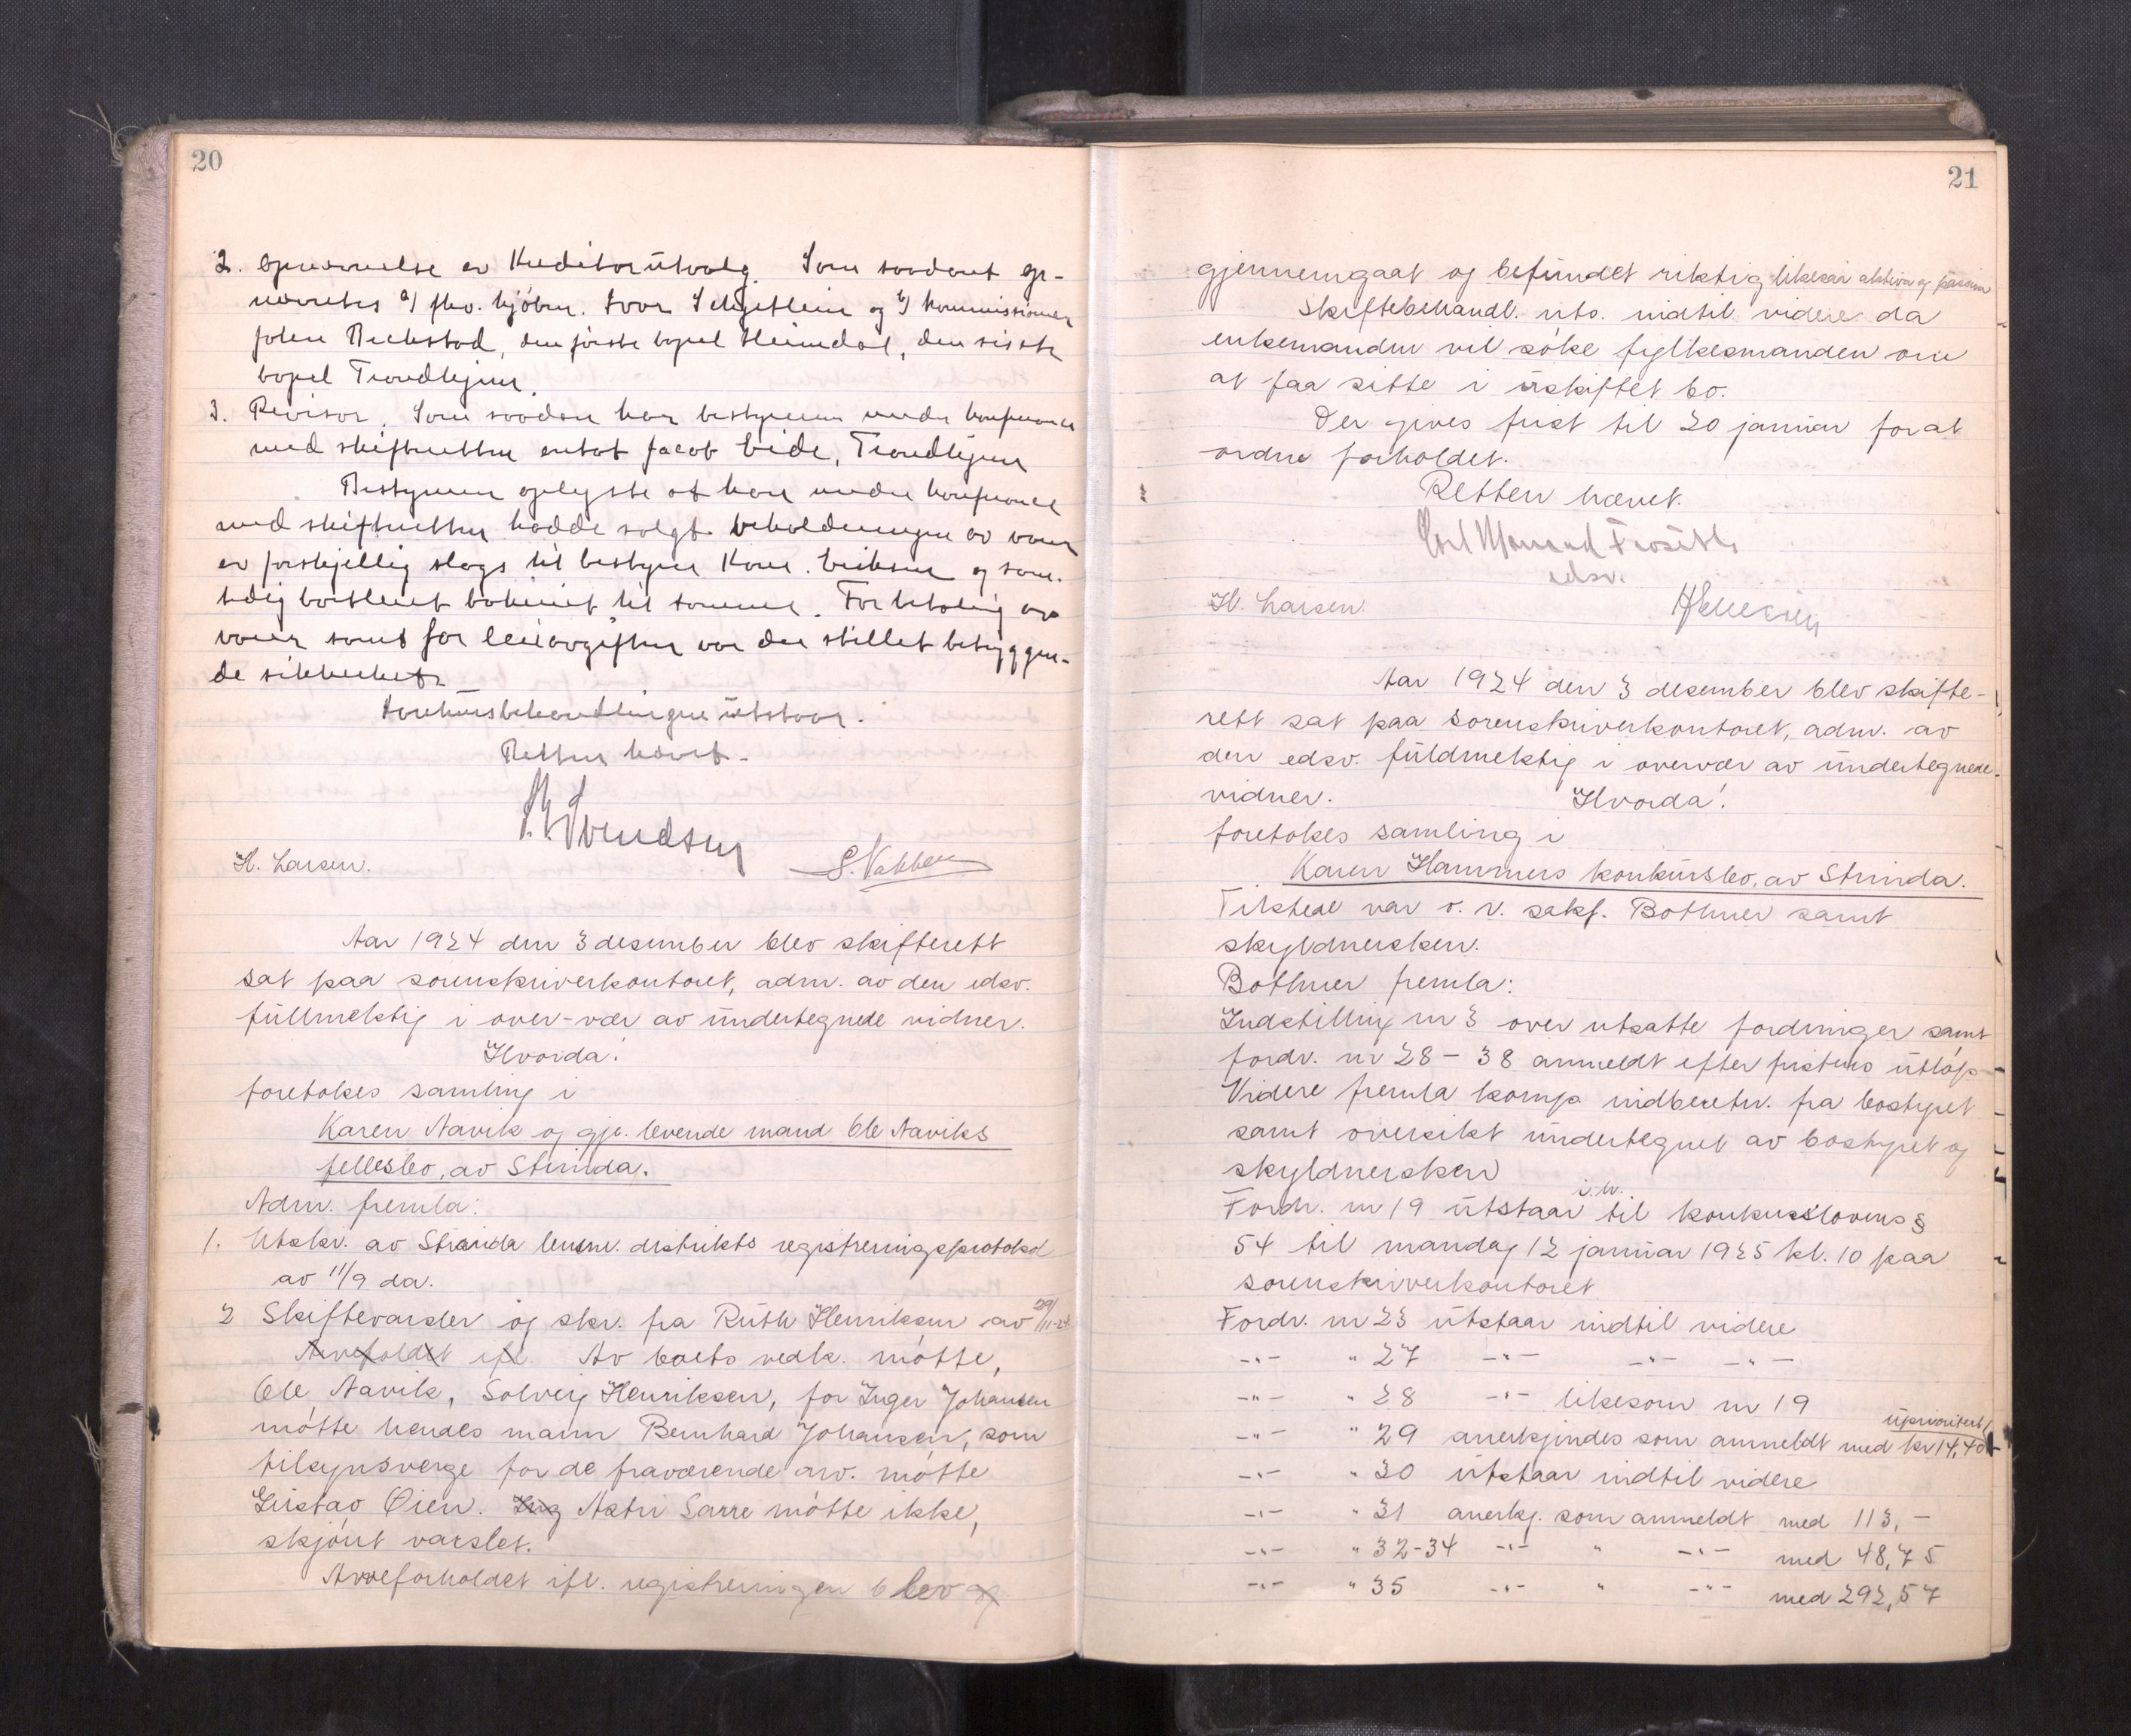 20
2. Opnævnelse av Kreditorutvalg. Som saadant op-
nævntes a) fhv. kjøbm. Ivar Selgestlein og b) kommissionær
Johan Bechstad, den første bopel Heimdal, den sisste
bopel Trondhjem.
3. Revisor. Som saadan har bestyreren under konferance
med skifteretten antat Jacob Eide, Trondhjem
Bestyreren oplyste at han under konferance
med skifteretten hadde solgt beholdningen av varer
av forskjellig slags til bestyrer Kaare Eriksen og sam-
tidig bortleiet lokalet til samme. For betaling av
varer samt for leieavgiften var der stillet betryggen-
de sikkerhet.
Konkursbehandlingen utstaar.
Retten hævet.
Svendsen
H. Larsen. S. Nabben
Aar 1924 den 3 desember blev skifterett
sat paa sorenskriverkontoret, adm. av den edsv.
fullmektig i over-vær av undertegnede vidner.
Hvorda!
foretokes samling i
Karen Aavik og gje. levende mand Ole Aaviks
fellesbo, av Strinda.
Adm. fremla:
1. Utskr. av Strinda lensm. distrikts registreringsprotokol
av 11/9 da.
2 Skiftevarsler og skr. fra Ruth Henriksen av 29/11-24
Arvefoldet ifl. Av boets vedk. møtte,
Ole Aavik, Solveig Henriksen, for Inger Johansen
møtte hendes mann Bernhard Johansen, som
tilsynsverge for de fraværende arv. møtte
Gustav Øien. Ing Astri Sarre møtte ikke,
skjønt varslet.
Arveforholdet ifl. registreringen blev og
21
gjennemgaat og befundet riktig likesaa aktiva og passiva
Skiftebehandl. uts. indtil videre da
enkemanden vil søke fylkesmanden om
at faa sitte i uskiftet bo.
Der gives frist til 20 januar for at
ordne forholdet.
Retten hævet.
edsv.
H. Larsen.
Aar 1924 den 3 desember blev skifte-
rett sat paa sorenskriverkontoret, adm. av
den edsv. fuldmektig i overvær av undertegnede
vidner. Hvorda!
foretokes samling i
Karen Hammers konkursbo, av Strinda.
Tilstede var o. r. sakf. Bothner samt
skyldnersken.
Bothner fremla:
Indstilling nr 3 over utsatte fordringer samt
fordr. nr 28 - 38 anmeldt efter fristens utløp
Videre fremla komp. indberetn. fra bostyret
samt oversikt undertegnet av bostyret og
skyldnersken
Fordr. nr 19 utstaar i. h. til konkurslovens §
54 til mandag 12 januar 1925 kl. 10 paa
sorenskriverkontoret
Fordr. nr 23 utstaar indtil videre
-"- " 27 -"- -"- -"-
-"- " 28 -"- likesom nr 19
-"- " 29 anerkjendes som anmeldt med kr 14,40 uprioritert
-"- " 30 utstaar indtil videre
-"- " 31 anerkj. som anmeldt med 113,-
-"- " 32-34 -"- " -"- med 48,75
-"- " 35 -"- " -"- med 292,57